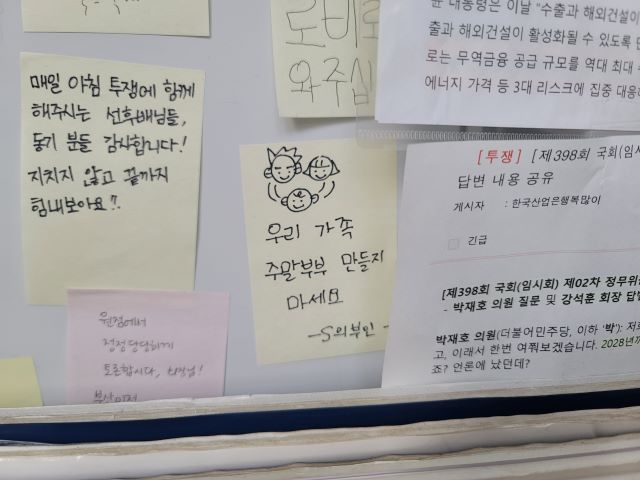 매일 아침 투쟁에 함께
해주시는 선후배님들,
동기 분들 감사합니다!
지치지 않고 끝까지
힘내보아요!!
원점에서
정정당당하게
토론합시다,
로비로
와주십
우리 가족
주말부부 만들지
마세요
-S의부인-
윤 대통령은 이날 "수출과 해외건설이
출과 해외건설이 활성화될 수 있도록
로는 무역금융 공급 규모를 역대 최대
에너지 가격 등 3대 리스크에 집중 대응
[투쟁] [제398회 국회(임시
답변 내용 공유
게시자 : 한국산업은행복많이
긴급
[제398회 국회(임시회) 제02차 정무위원
- 박재호 의원 질문 및 강석훈 회장 답변
박재호 의원(더불어민주당, 이하 '박'): 저
고, 이래서 한번 여쭤보겠습니다. 2028년까
죠? 언론에 났던데?